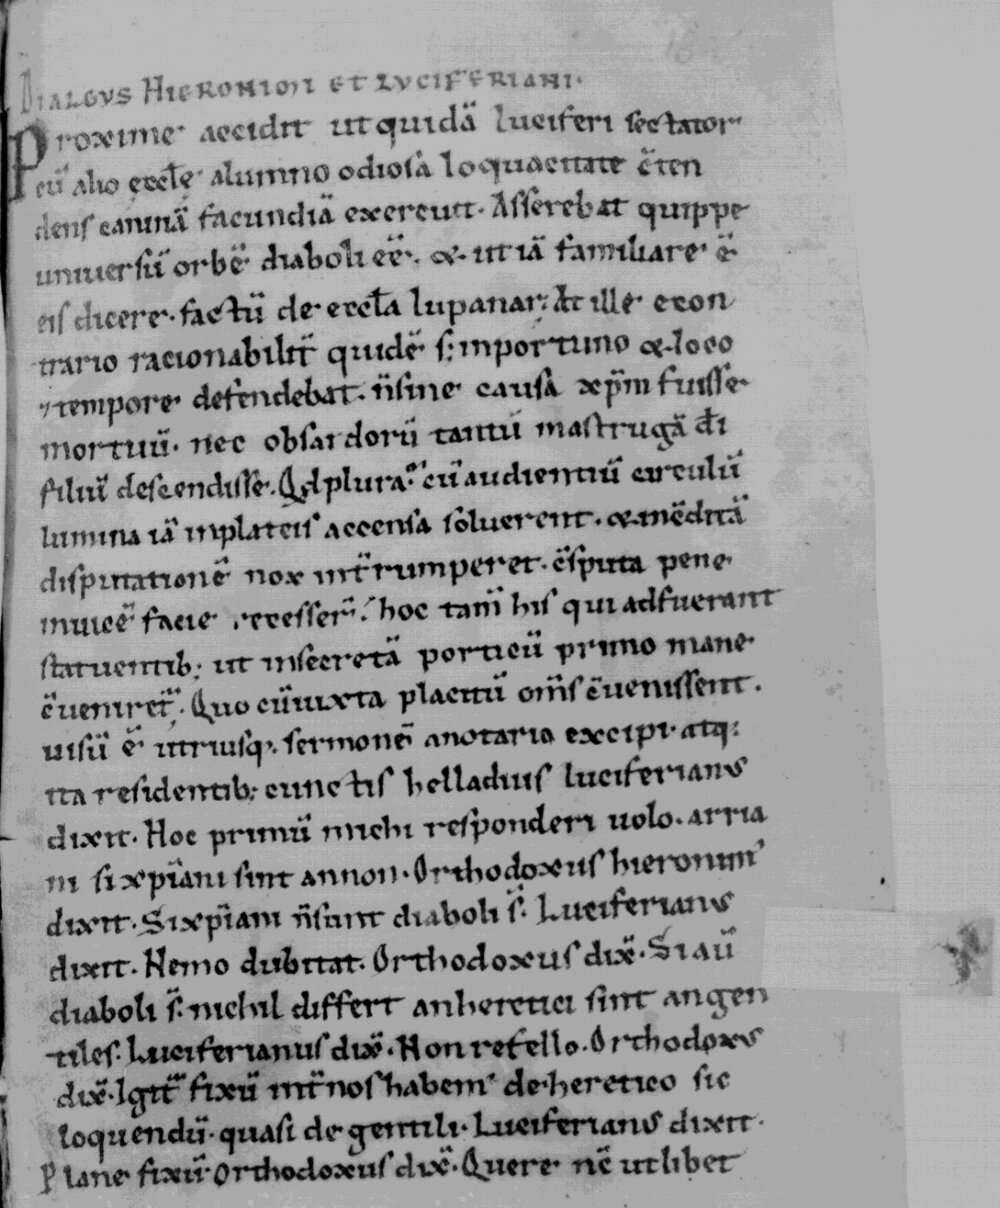 DIALGVS HIERONIMI ET LVCIFERIANI·
Proxime accidit ut quidā luciferi sectator
cū alio eccłe alumno odiosa loquacitate c̄ten
dens caninā facundiā exercuit. Asserebat quippe
uniuersū orbē diaboli eē. & ut iā familiare ē
eis dicere. factū de eccła lupanar; At ille econ
trario racionabilit̄ quidē s; inportuno & loco
& tempore defendebat. n̄ sine causa xp̄m fuisse
mortuū. nec obsardorū tantū mastrugā di
filiū descendisse. Qd plura? cū audientiū circulū
lumina iā inplateis accensa soluerent. & inc̄ditā
disputationē nox int̄rumperet. c̄sputa pene
inuicē facie recesser̄. hoc tam̄ his qui adfuerant
statuentib; ut insecretā porticū primo mane
c̄ueniret̄. Quo cū iuxta placitū om̄s c̄uenissent.
uisū ē utriusq; sermonē anotario excipi. atq;
ita residentib; cunctis helladius luciferianus
dixit. Hoc primū michi responderi uolo. arria
ni si xp̄iani sint annon. Orthodoxus hieronim'
dixit. Si xp̄iani n̄ sunt diaboli s̄. Luciferianus
dixit. Nemo dubitat. Orthodoxus dix̄. Si aū
diaboli s̄. nichil differt anheretici sint angen
tiles. Luciferianus dix̄. Non refello. Orthodoxus
dix̄. Igit̄ fixū int̄ nos habem' de heretico sic
loquendū. quasi de gentili. Luciferianus dixit.
Plane fixū. Orthodoxus dix̄. Quere nc̄ utlibet